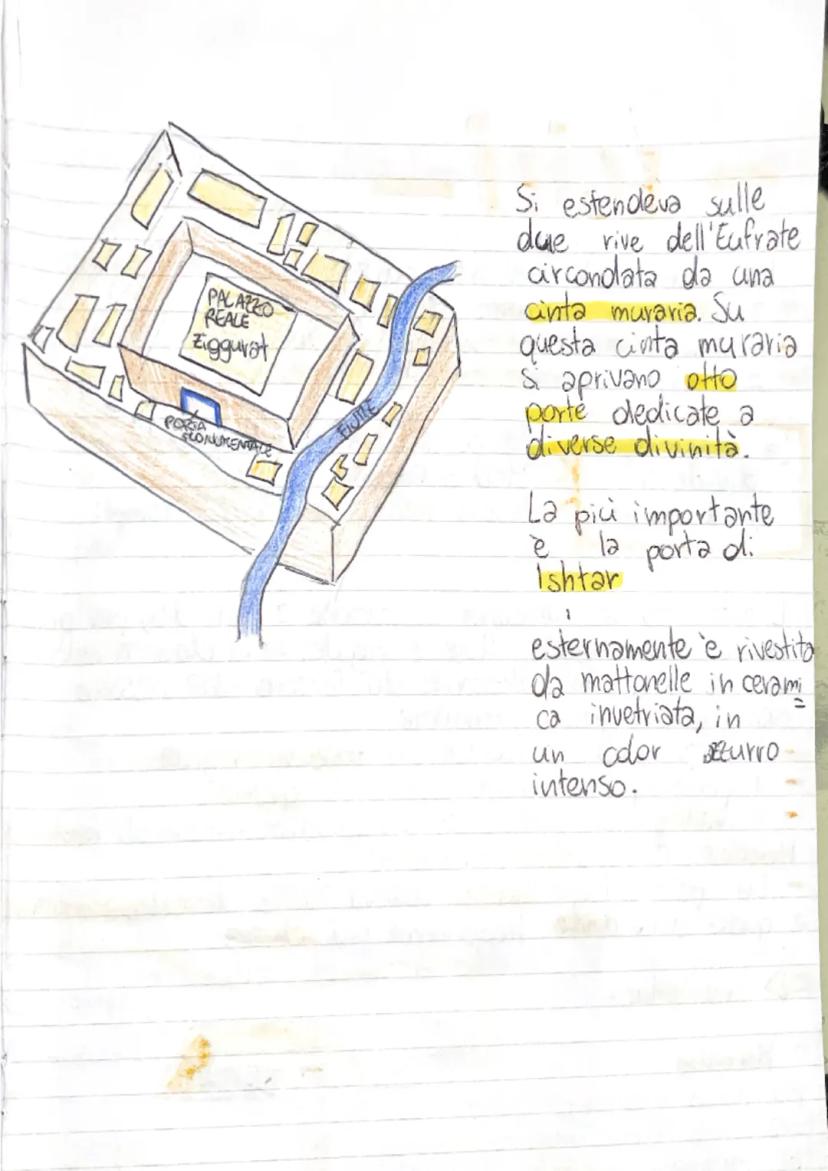 PALAZZO
REALE
Ziggurat
PORTA
MONUMENTALE
FIUME
Si estendeva sulle
due rive dell'Eufrate
circondata da una
cinta muraria. Su
questa cinta muraria
si aprivano otto
porte dedicate a
diverse divinità.
La più importante
è la porta di
Ishtar
esternamente è rivestita
da mattonelle in cerami=
ca invetriata, in
un color azzurro
intenso.